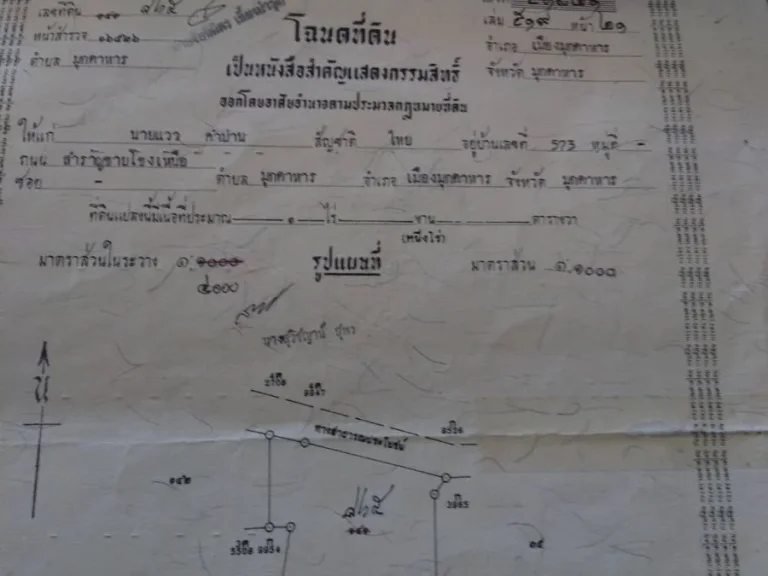 เลขที่ดิน ๑๔๑ ๘๖๕
หน้าสำรวจ
ตำบล มุกดาหาร
โฉนดที่ดิน
เป็นหนังสือสำคัญแสดงกรรมสิทธิ์
ออกโดยอาศัยอำนาจตามประมวลกฎหมายที่ดิน
เล่ม ๕๑๙ หน้า ๒๑
อำเภอ เมืองมุกดาหาร
จังหวัด มุกดาหาร
ให้แก่ นายแวว คำปาน สัญชาติ ไทย อยู่บ้านเลขที่ 573 หมู่ที่ -
ถนน สำราญชายโขงเหนือ
ซอย - ตำบล มุกดาหาร อำเภอ เมืองมุกดาหาร จังหวัด มุกดาหาร
ที่ดินแปลงนี้มีเนื้อที่ประมาณ ๑ ไร่ - งาน - ตารางวา
(หนึ่งไร่)
มาตราส่วนในระวาง ๑:๑๐๐๐ รูปแผนที่ มาตราส่วน ๑:๑๐๐๐
๔๐๐๐
น
ทางสาธารณประโยชน์
๑๔๒
๘๖๕
๑๔๑
๑๕